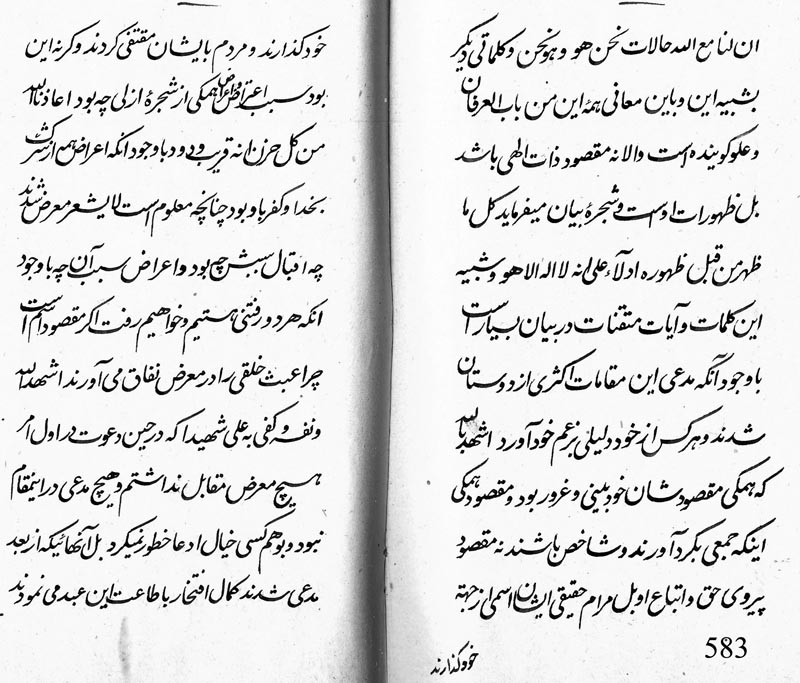 ان لنا مع الله حالات نحن هو و هو نحن و کلماتی دیگر
بشبیه این و باین معانی همهٔ این من باب العرفان
و علو کوینده است و الا نه مقصود ذات الهی باشد
بل ظهورات اوست و شجرهٔ بیان میفرماید کل ما
ظهر من قبل ظهوره ادلاء علی انه لا اله الا هو و شبیه
این کلمات و آیات متقنات در بیان بسیار است
با وجود آنکه مدعی این مقامات اکثری از دوستان
شدند و هر کس از خود دلیلی بزعم خود آورد اشهد بالله
که همکی مقصودشان خودبینی و غرور بود و مقصود همکی
اینکه جمعی بکرد آورند و شاخص باشند نه مقصود
پیروی حق و اتباع او بل مرام حقیقی ایشان اسمی از جهة
خود کذارند
583
خود کذارند و مردم بایشان مقتفی کردند و کر نه این
بود سبب اعتراض و اعراض همکی از شجرهٔ ازلی چه بود اعاذنا الله
من کل حزن انه قریب ودود با وجود آنکه اعراض هم از شرکت
بخدا و کفر باو بود چنانچه معلوم است لا یشعر معرض شدند
چه اقبال سببش چه بود و اعراض سبب آن چه با وجود
آنکه هر دو رفتنی هستیم و خواهیم رفت اکر مقصود اسم است
چرا عبث خلقی را در معرض نفاق می آورند اشهد الله
و نفسه و کفی به علی شهیدا که در حین دعوت در اول امر
هیچ معرض مقابل نداشتم و هیچ مدعی در اینمقام
نبود و بوهم کسی خیال ادعا خطور نمیکرد بل آنهائیکه از بعد
مدعی شدند کمال افتخار باطاعت این عبد می نمودند